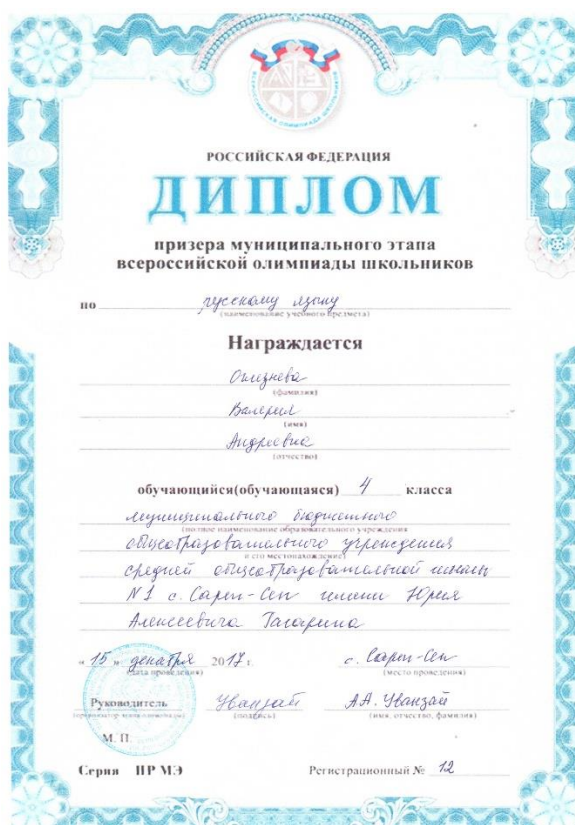 РОССИЙСКАЯ ФЕДЕРАЦИЯ
ДИПЛОМ
призера муниципального этапа
всероссийской олимпиады школьников
по русскому языку
(наименование учебного предмета)
Награждается
(фамилия)
Валерия
(имя)
Андреевна
(отчество)
обучающийся(обучающаяся) 4 класса
муниципального бюджетного
(полное наименование образовательного учреждения
общеобразовательного учреждения
и его местонахождение)
средней общеобразовательной школы
№1 с. Сарыг-Сеп имени Юрия
Алексеевича Гагарина
« 15 » декабря 2017 г. с. Сарыг-Сеп
(дата проведения) (место проведения)
Руководитель Уванзай А.А. Уванзай
(подпись) (имя, отчество, фамилия)
М. П.
Серия ПР МЭ Регистрационный № 12